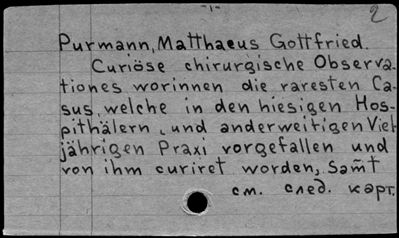 -1-
2
Purmann, Matthaeus Gottfried.
Curiöse chirurgische Observa-
tiones worinnen die raresten Ca-
sus, welche in den hiesigen Hos-
pithälern, und anderweitigen Viel
jährigen Praxi vorgefallen und
von ihm curiret worden, Sam̃t
см. след. карт.